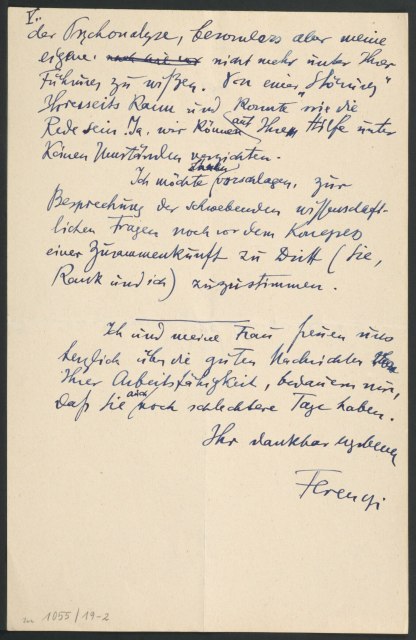 V.
der Psychoanalyse, besonders aber meine
eigene, nicht mehr unter Ihrer
Führung zu wissen. Von einer „Störung"
Ihrerseits kann und konnte nie die
Rede sein. Ja, wir können auf Ihre Hilfe unter
keinen Umständen verzichten.
Ich möchte vorschlagen, zur
Besprechung der schwebenden wissenschaft-
lichen Fragen noch vor dem Kongress
einer Zusammenkunft zu Dritt (Sie,
Rank und ich) zuzustimmen.
Ich und meine Frau freuen uns
herzlich über die guten Nachrichten
Ihrer Arbeitsfähigkeit, bedauern nur,
daß Sie auch noch schlechtere Tage haben.
Ihr dankbar ergebener
Ferenczi
1055/19-2